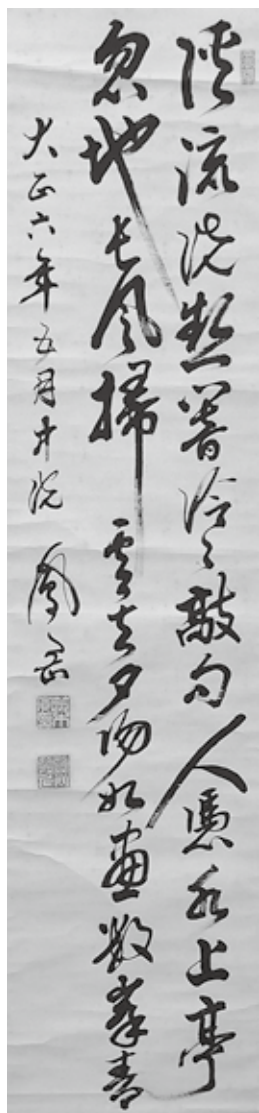 溪流洗熱響泠々敲句人憑水上亭
忽地長風掃雲去夕陽如畫數峯青
大正六年五月中浣 鳳岳